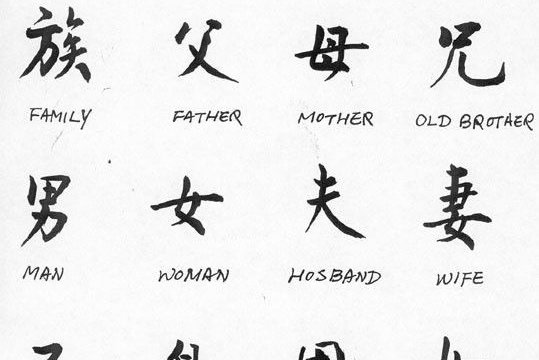 族 父 母 兄
FAMILY FATHER MOTHER OLD BROTHER
男 女 夫 妻
MAN WOMAN HOSBAND WIFE